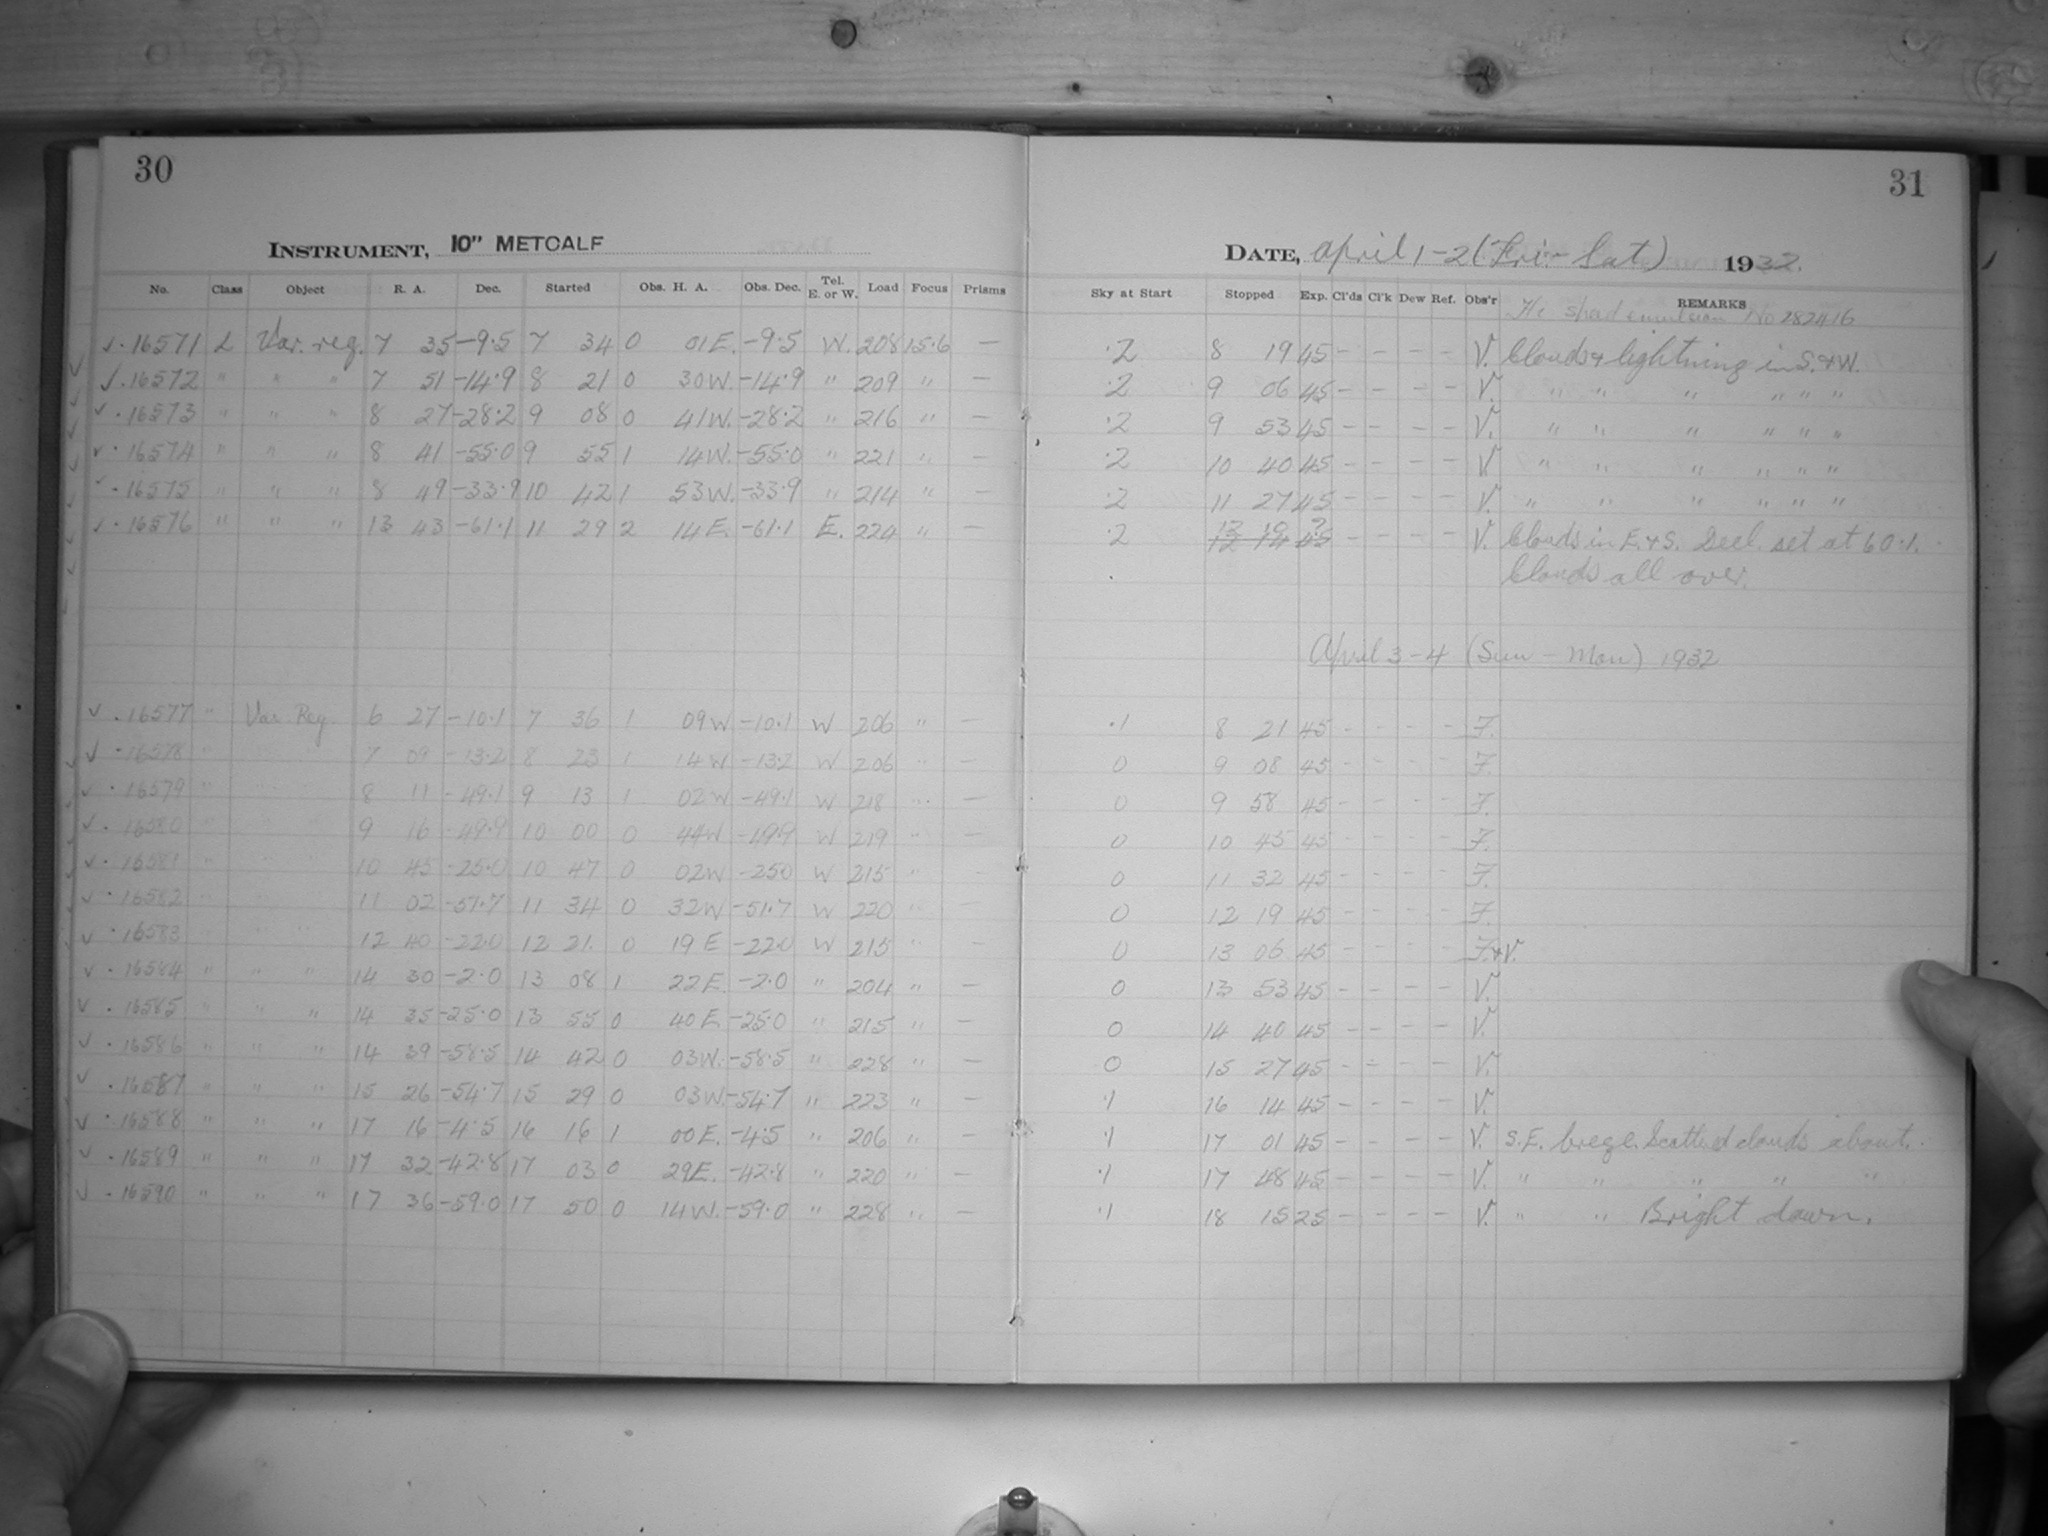 30
31
INSTRUMENT, 10" METCALF
DATE, April 1-2 (Fri.- Sat) 1932.
No. Class Object R. A. Dec. Started Obs. H. A. Obs. Dec. Tel. E. or W. Load Focus Prisms Sky at Start Stopped Exp. Cl'ds Cl'k Dew Ref. Obs'r REMARKS
emulsion No 282416
√ · 16571 L Var. reg. 7 35 -9.5 7 34 0 01 E. -9.5 W. 208 15.6 — .2 8 19 45 - - - - V. Clouds & lightning in S. & W.
√ · 16572 " " " 7 51 -14.9 8 21 0 30 W. -14.9 " 209 " — .2 9 06 45 - - - - V. " " " " " "
√ · 16573 " " " 8 27 -28.2 9 08 0 41 W. -28.2 " 216 " — .2 9 53 45 - - - - V. " " " " " "
√ · 16574 " " " 8 41 -55.0 9 55 1 14 W. -55.0 " 221 " — .2 10 40 45 - - - - V " " " " " "
√ · 16575 " " " 8 49 -33.9 10 42 1 53 W. -33.9 " 214 " — .2 11 27 45 - - - - V. " " " " " "
√ · 16576 " " " 13 43 -61.1 11 29 2 14 E. -61.1 E. 224 " — .2 12 14 45 - - - - V. Clouds in E. & S. Decl. set at 60.1.
Clouds all over.
April 3-4 (Sun - Mon) 1932
√ · 16577 " Var Reg 6 27 -10.1 7 36 1 09 W -10.1 W 206 " — .1 8 21 45 - - - - F.
√ · 16578 " 7 09 -13.2 8 23 1 14 W -13.2 W 206 " — 0 9 08 45 - - - - F.
√ · 16579 " 8 11 -49.1 9 13 1 02 W -49.1 W 218 " — 0 9 58 45 - - - - F.
√ · 16580 " 9 16 -49.9 10 00 0 44 W -49.9 W 219 " — 0 10 45 45 - - - - F.
√ · 16581 " 10 45 -25.0 10 47 0 02 W -25.0 W 215 " — 0 11 32 45 - - - - F.
√ · 16582 " 11 02 -51.7 11 34 0 32 W -51.7 W 220 " — 0 12 19 45 - - - - F.
√ · 16583 " " " 12 40 -22.0 12 21 0 19 E -22.0 W 215 " — 0 13 06 45 - - - - F. & V.
√ · 16584 " " " 14 30 -2.0 13 08 1 22 E. -2.0 " 204 " — 0 13 53 45 - - - - V.
√ · 16585 " " " 14 35 -25.0 13 55 0 40 E -25.0 " 215 " — 0 14 40 45 - - - - V.
√ · 16586 " " " 14 39 -58.5 14 42 0 03 W. -58.5 " 228 " — 0 15 27 45 - - - - V.
√ · 16587 " " " 15 26 -54.7 15 29 0 03 W. -54.7 " 223 " — .1 16 14 45 - - - - V.
√ · 16588 " " " 17 16 -4.5 16 16 1 00 E. -4.5 " 206 " — .1 17 01 45 - - - - V. S.E. breeze. Scattered clouds about.
√ · 16589 " " " 17 32 -42.8 17 03 0 29 E. -42.8 " 220 " — .1 17 48 45 - - - - V. " " " " "
√ · 16590 " " " 17 36 -59.0 17 50 0 14 W. -59.0 " 228 " — .1 18 15 25 - - - - V. " " Bright dawn.